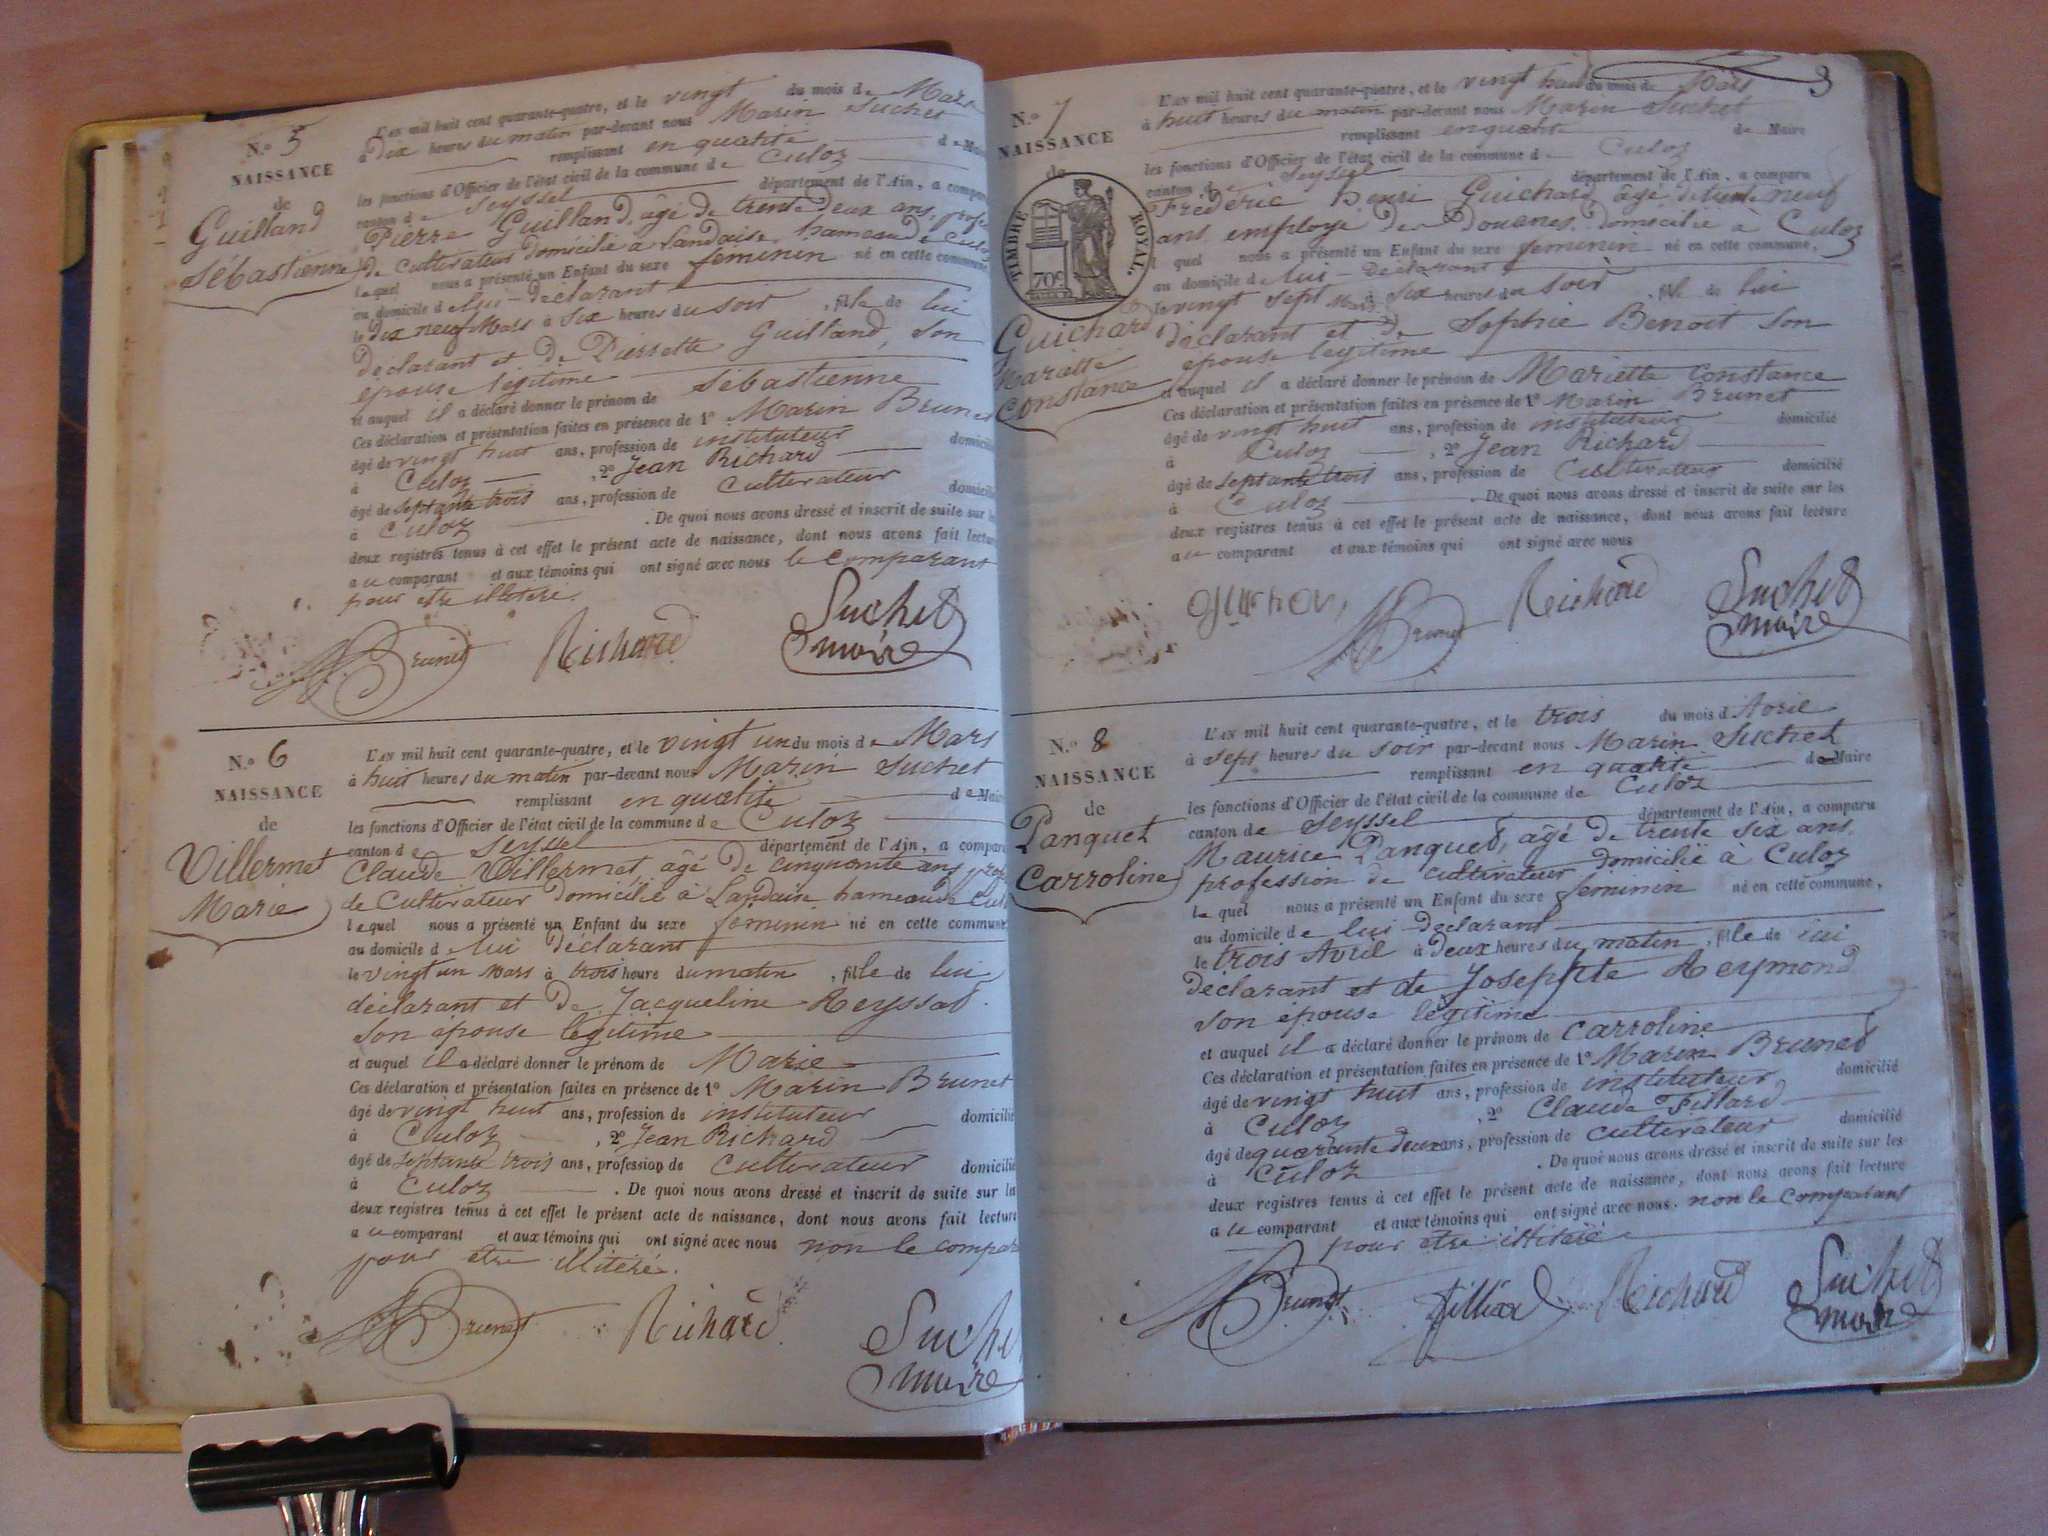 N.o 5
NAISSANCE
de
Guilland
Sébastienne
L'AN mil huit cent quarante-quatre, et le vingt du mois de Mars
à dix heures du matin par-devant nous Marin Suchet
remplissant en qualité de Maire
les fonctions d'Officier de l'état civil de la commune de Culoz
canton de Seyssel département de l'Ain, a comparu
Pierre Guilland, âgé de trente deux ans, profe
de cultivateur domicilié à Landaise hameau de Culoz
lequel nous a présenté un Enfant du sexe feminin né en cette commune,
au domicile de lui-déclarant
le dix neuf Mars à six heures du soir, fille de lui
déclarant et de Pierrette Guilland, son
epouse légitime
et auquel il a déclaré donner le prénom de Sébastienne
Ces déclaration et présentation faites en présence de 1o Marin Brunet
âgé de vingt huit ans, profession de instituteur domicilié
à Culoz, 2o Jean Richard
âgé de septante trois ans, profession de cultivateur domicilié
à Culoz. De quoi nous avons dressé et inscrit de suite sur les
deux registres tenus à cet effet le présent acte de naissance, dont nous avons fait lecture
au comparant et aux témoins qui ont signé avec nous le comparant
pour etre illiteré.
Brunet Richard Suchet
maire
N.o 6
NAISSANCE
de
Villermet
Marie
L'AN mil huit cent quarante-quatre, et le vingt un du mois de Mars
à huit heures du matin par-devant nous Marin Suchet
remplissant en qualité de Maire
les fonctions d'Officier de l'état civil de la commune de Culoz
canton de Seyssel département de l'Ain, a comparu
Claude Villermet, âgé de cinquante ans, prof
de cultivateur domicilié à Landaise hameau de Culoz
lequel nous a présenté un Enfant du sexe feminin né en cette commune
au domicile d lui déclarant
le vingt un Mars à trois heure du matin, fille de lui
déclarant et de Jacqueline Reyssat.
son épouse légitime
et auquel il a déclaré donner le prénom de Marie
Ces déclaration et présentation faites en présence de 1o Marin Brunet
âgé de vingt huit ans, profession de instituteur domicilié
à Culoz, 2o Jean Richard
âgé de septante trois ans, profession de cultivateur domicilié
à Culoz. De quoi nous avons dressé et inscrit de suite sur les
deux registres tenus à cet effet le présent acte de naissance, dont nous avons fait lecture
au comparant et aux témoins qui ont signé avec nous non le compar
pour etre illiteré.
Brunet Richard Suchet
maire
3
N.o 7
NAISSANCE
de
TIMBRE ROYAL.
70c
Guichard
Mariette
Constance
L'AN mil huit cent quarante-quatre, et le vingt huit du mois de Mars
à huit heures du matin par-devant nous Marin Suchet
remplissant en qualité de Maire
les fonctions d'Officier de l'état civil de la commune d Culoz
canton de Seyssel département de l'Ain, a comparu
Fréderic Henri Guichard, âgé de trente neuf
ans, employé des Douanes, domicilié à Culoz
l quel nous a présenté un Enfant du sexe feminin né en cette commune,
au domicile de lui-déclarant
le vingt sept Mars à six heures du soir, fille de lui
déclarant et de Sophie Benoit son
epouse légitime
et auquel il a déclaré donner le prénom de Mariette Constance
Ces déclaration et présentation faites en présence de 1o Marin Brunet
âgé de vingt huit ans, profession de instituteur domicilié
à Culoz, 2o Jean Richard
âgé de septante trois ans, profession de cultivateur domicilié
à Culoz. De quoi nous avons dressé et inscrit de suite sur les
deux registres tenus à cet effet le présent acte de naissance, dont nous avons fait lecture
au comparant et aux témoins qui ont signé avec nous
Brunet Richard Suchet
maire
N.o 8
NAISSANCE
de
Panquet
Carroline
L'AN mil huit cent quarante-quatre, et le trois du mois d'Avril
à sept heures du soir par-devant nous Marin Suchet
remplissant en qualité de Maire
les fonctions d'Officier de l'état civil de la commune de Culoz
canton de Seyssel département de l'Ain, a comparu
Maurice Panquet, âgé de trente six ans,
profession de cultivateur domicilié à Culoz
lequel nous a présenté un Enfant du sexe feminin né en cette commune,
au domicile de lui-déclarant
le trois Avril à deux heures du matin, fille de lui
déclarant et de Josephte Reymond
son épouse légitime
et auquel il a déclaré donner le prénom de Carroline
Ces déclaration et présentation faites en présence de 1o Marin Brunet
âgé de vingt huit ans, profession de instituteur domicilié
à Culoz, 2o Claude Filliard
âgé de quarante deux ans, profession de cultivateur domicilié
à Culoz. De quoi nous avons dressé et inscrit de suite sur les
deux registres tenus à cet effet le présent acte de naissance, dont nous avons fait lecture
au comparant et aux témoins qui ont signé avec nous. non le comparant
pour etre illiteré
Brunet Filliard Richard Suchet
maire